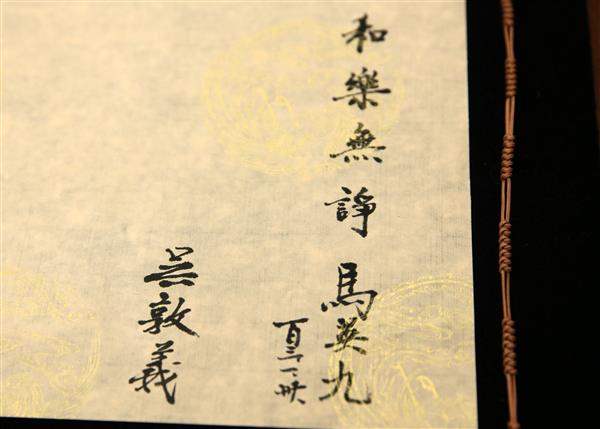 和樂無諍 馬英九
百二、一、卅
吳敦義